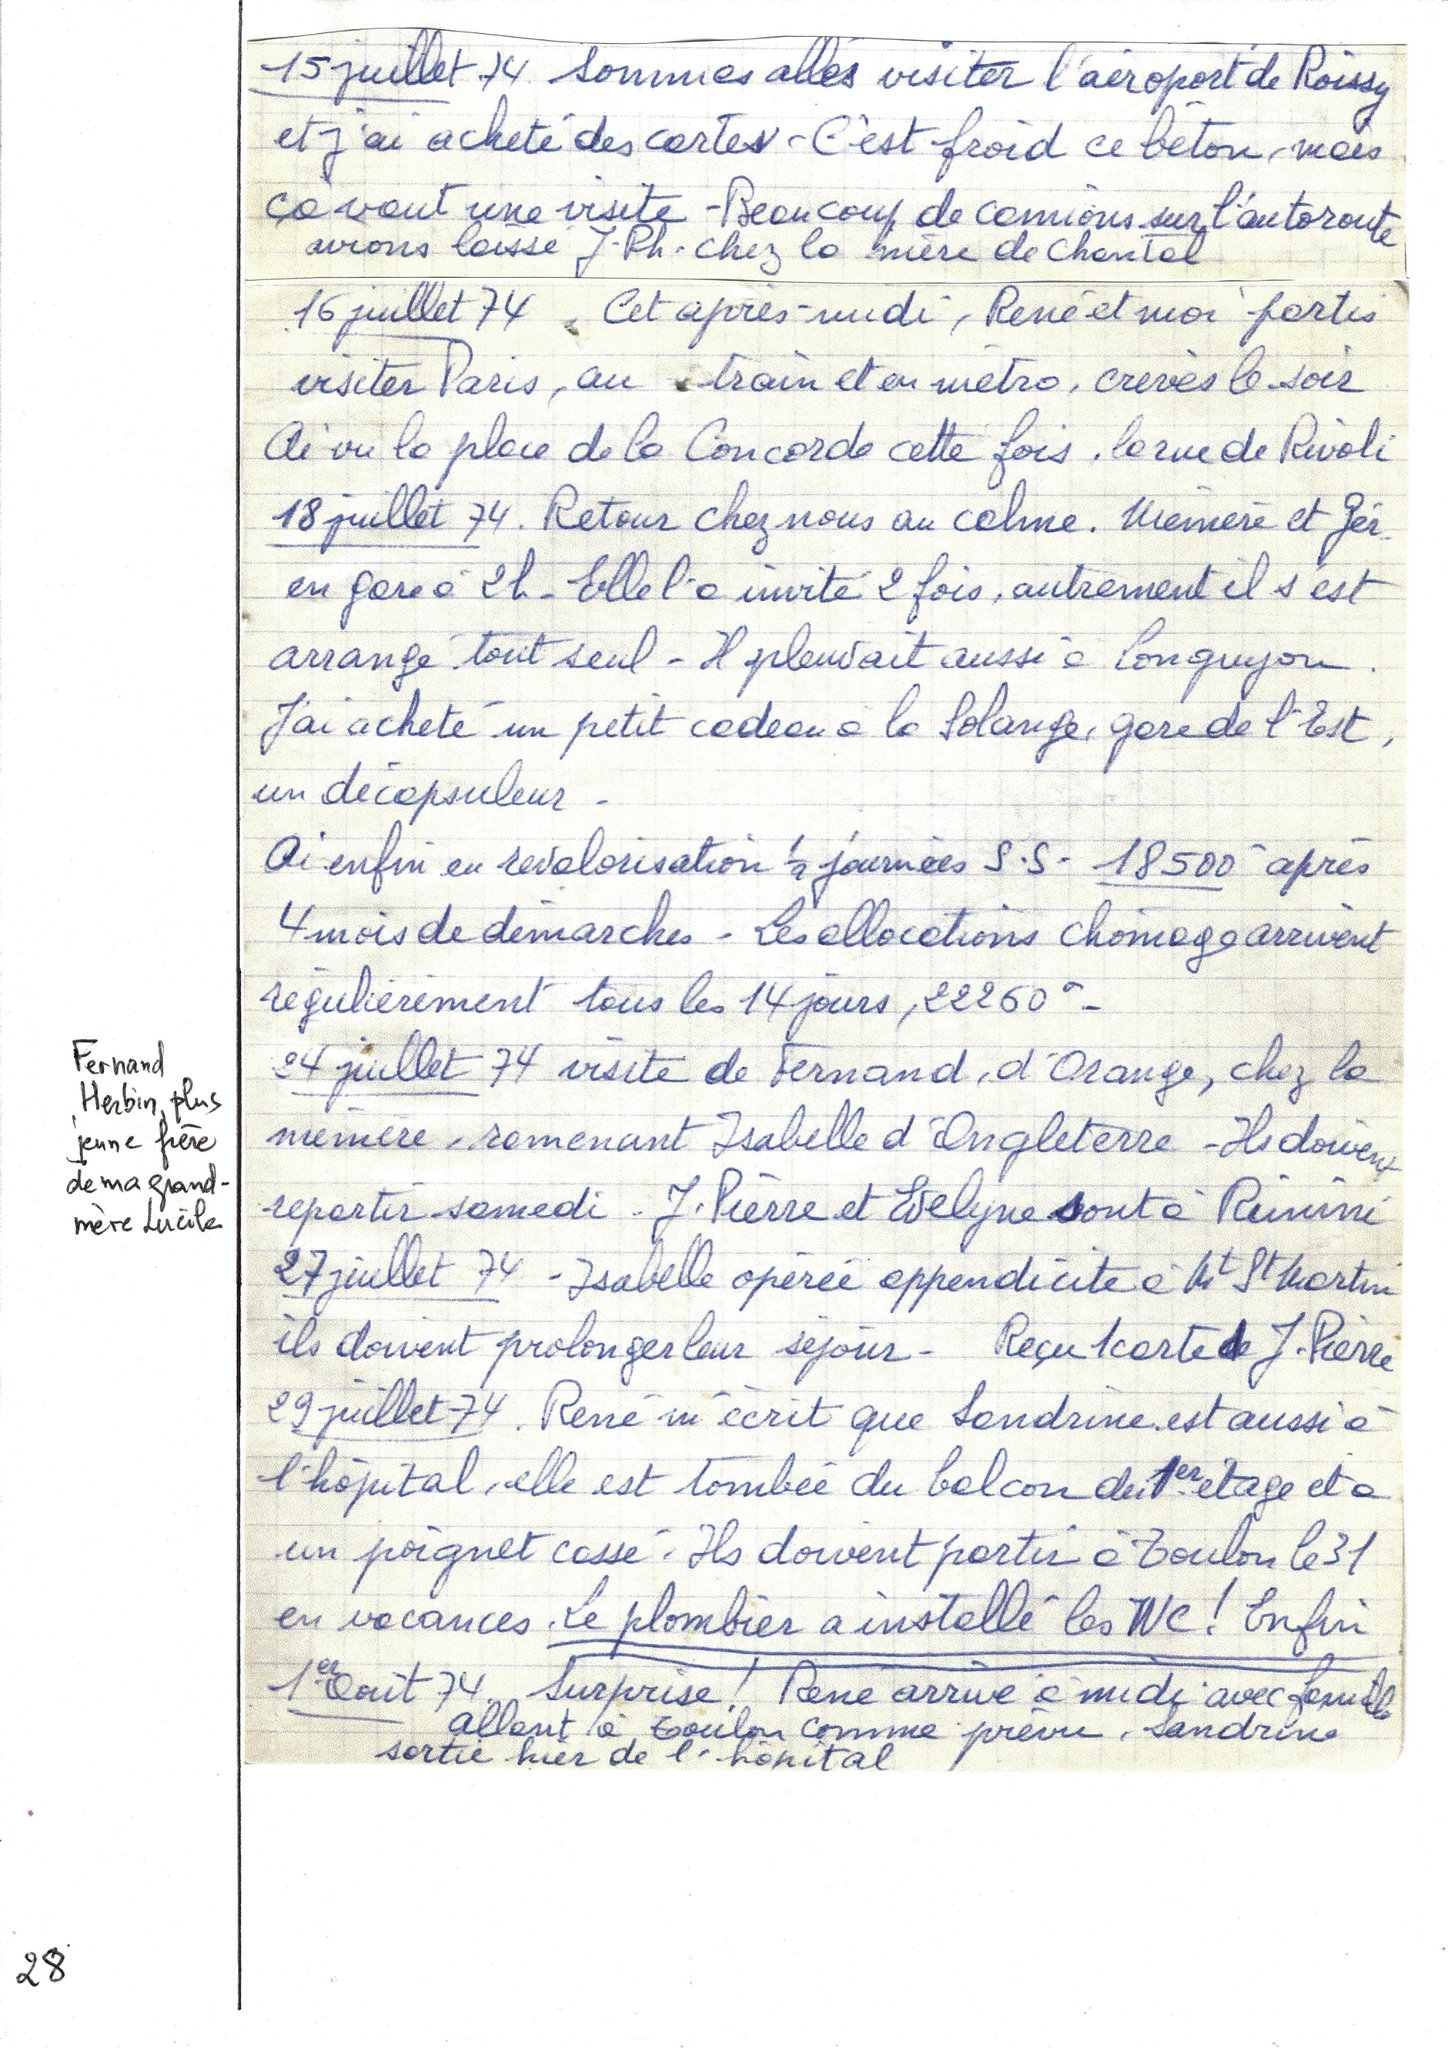 15 juillet 74 Sommes allés visiter l'aéroport de Roissy
et j'ai acheté des cartes - C'est froid ce béton, mais
ça vaut une visite - Beaucoup de camions sur l'autoroute
avions laissé J. Ph. chez la mère de Chantal
16 juillet 74, Cet après-midi, René et moi partis
visiter Paris, au train et en métro, crevés le soir
Ai vu la place de la Concorde cette fois, la rue de Rivoli
18 juillet 74. Retour chez nous au calme. Mémère et Gér.
en gare à 2h - Elle l'a invité 2 fois, autrement il s'est
arrangé tout seul - Il pleuvait aussi à Longuyon.
J'ai acheté un petit cadeau à la Solange, gare de l'Est,
un décapsuleur -
Ai enfin eu revalorisation 1/2 journées S.S. - 18500 après
4 mois de démarches - Les allocations chômage arrivent
régulièrement tous les 14 jours, 22260 -
24 juillet 74 visite de Fernand, d'Orange, chez la
mémère, ramenant Isabelle d'Angleterre - Ils doivent
repartir samedi - J. Pierre et Evelyne sont à Rimini
27 juillet 74 - Isabelle opérée appendicite à Mt St Martin
ils doivent prolonger leur séjour - Reçu 1 carte de J. Pierre
29 juillet 74. René m'écrit que Sandrine est aussi à
l'hôpital, elle est tombée du balcon du 1er étage et a
un poignet cassé. Ils doivent partir à Toulon le 31
en vacances. Le plombier a installé les WC ! Enfin
1er Août 74. Surprise ! René arrive à midi avec famille
allant à Toulon comme prévu. Sandrine
sortie hier de l'hôpital
Fernand
Herbin, plus
jeune frère
de ma grand-
mère Lucile
28